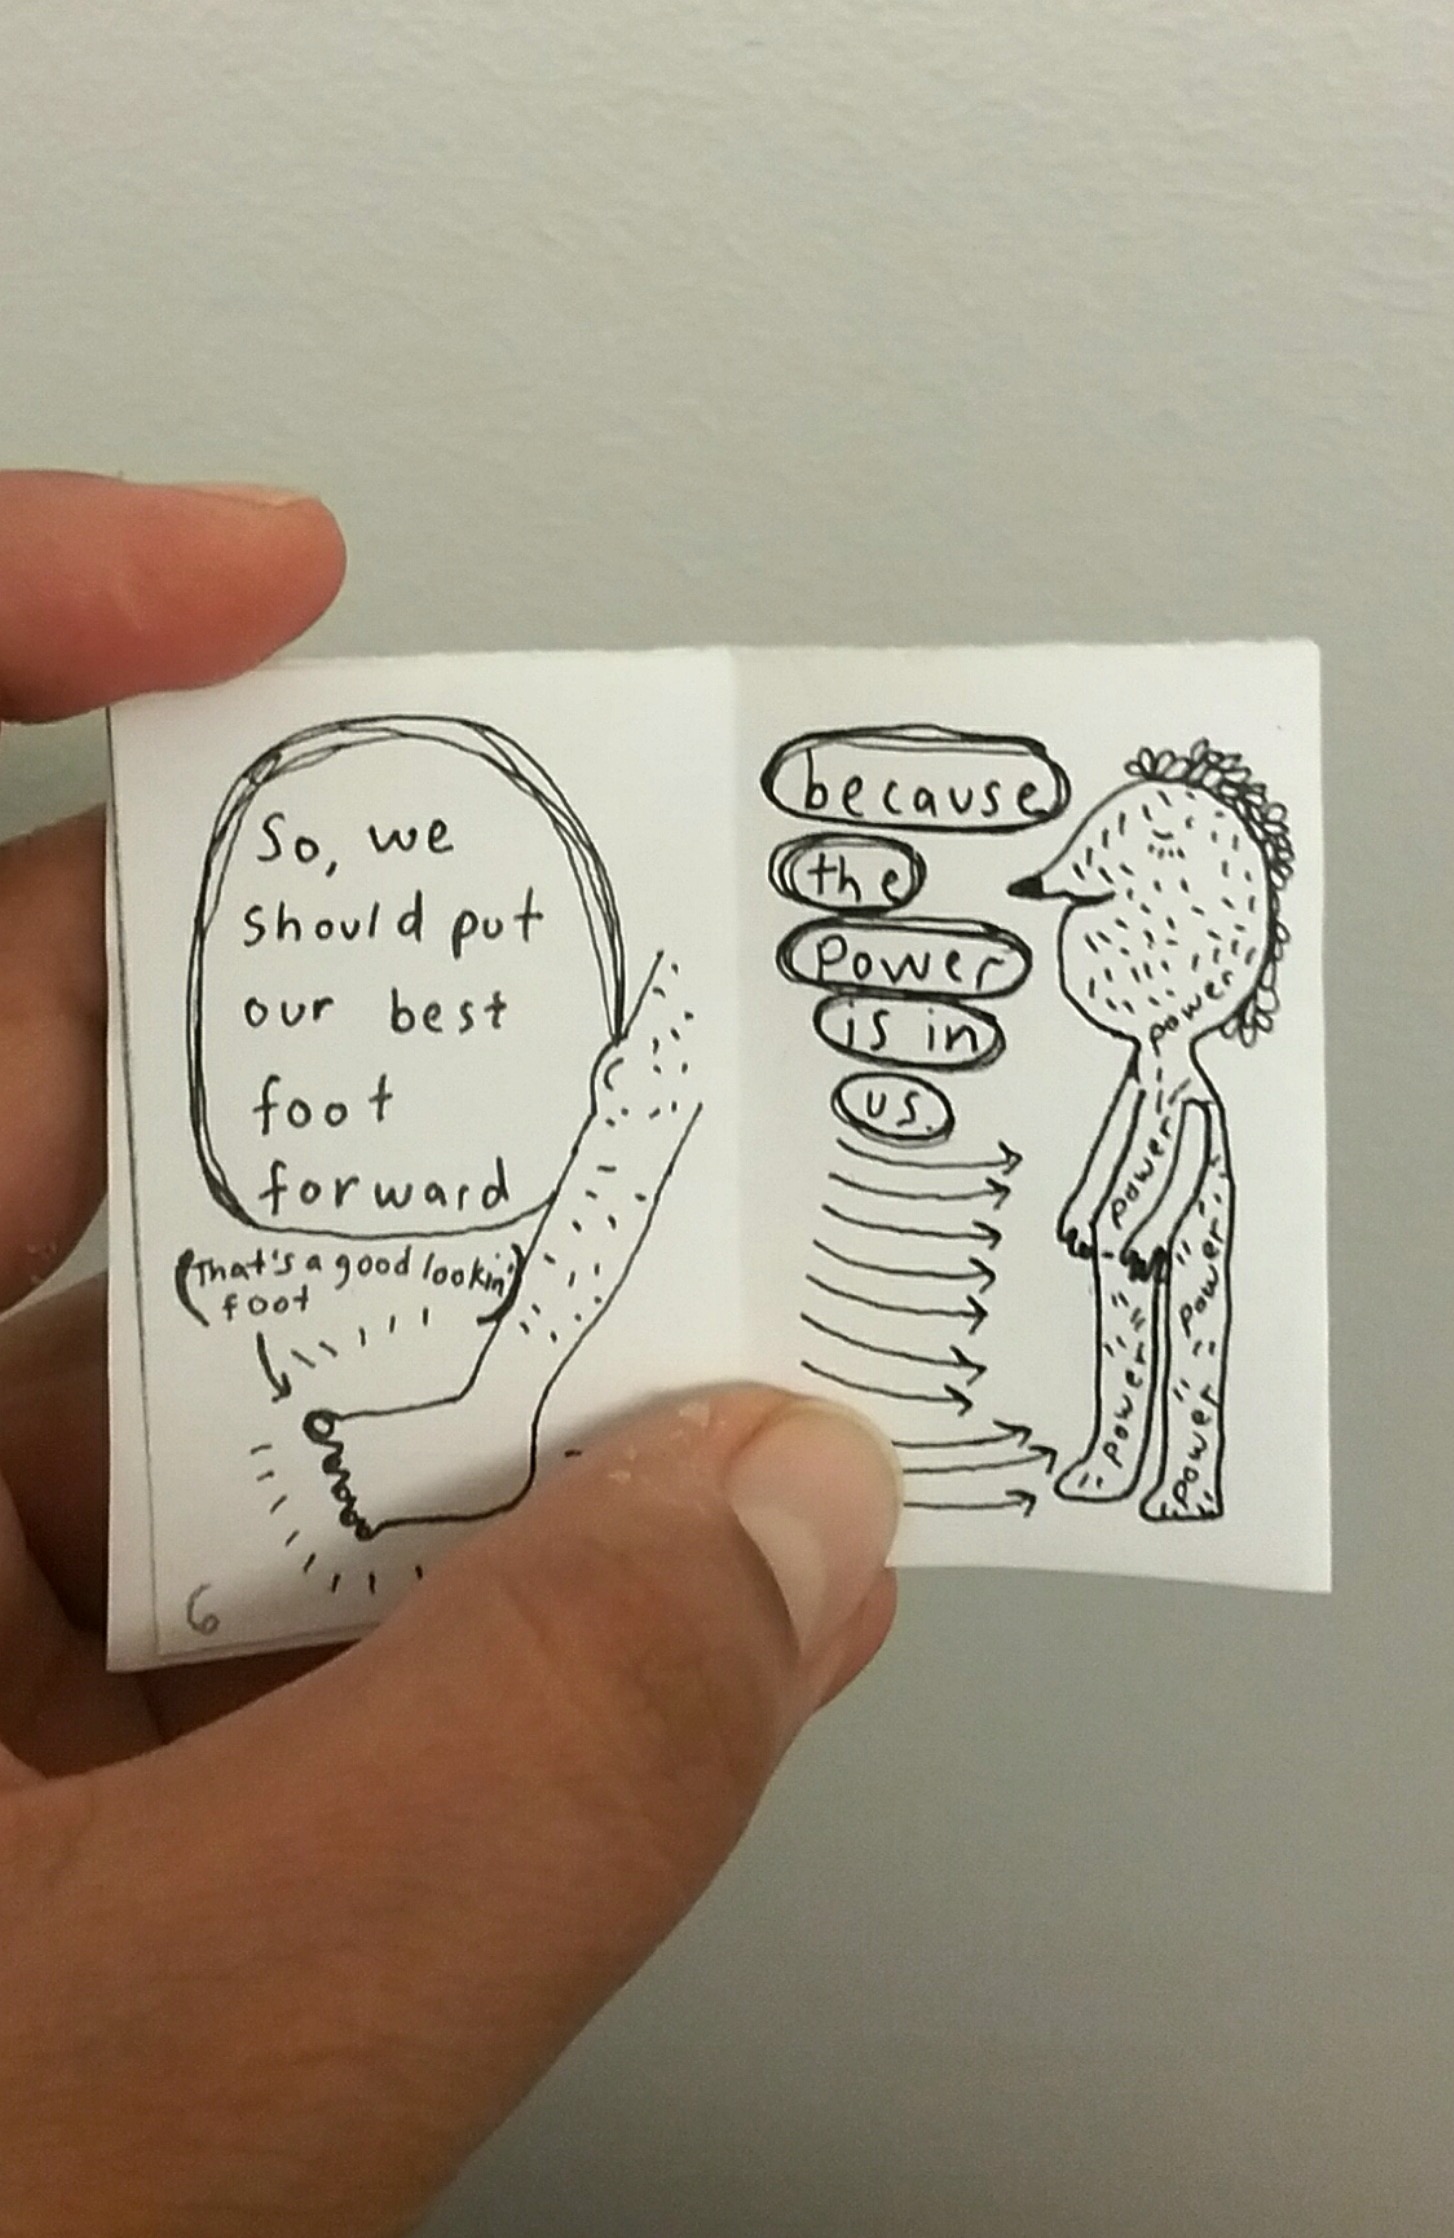 So, we
should put
our best
foot
forward
(That's a good lookin'
foot)
6
because
the
power
is in
us.
power
power
power
power
power
power